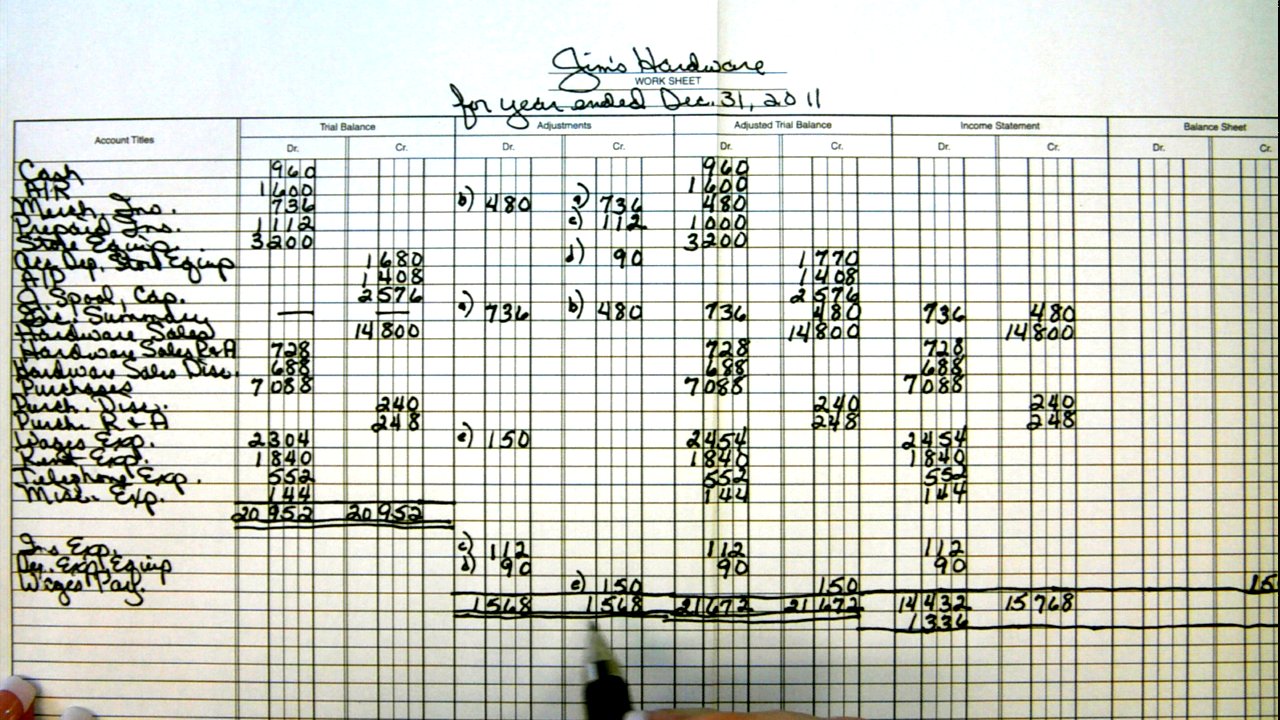 Jim's Hardware
WORK SHEET
for year ended Dec. 31, 2011
Account Titles Trial Balance Adjustments Adjusted Trial Balance Income Statement Balance Sheet
Dr. Cr. Dr. Cr. Dr. Cr. Dr. Cr. Cr.
Cash 960 960
A/R 1600 1600
Merch. Ins. 736 b) 480 a) 736 480
Prepaid Ins. 1112 c) 112 1000
Store Equip. 3200 3200
Acc. Dep. Store Equip 1680 d) 90 1770
A/P 1408 1408
J. Spool, Cap. 2576 2576
Inc. Summary — — a) 736 b) 480 736 480 736 480
Hardware Sales 14800 14800 14800
Hardware Sales R+A 728 728 728
Hardware Sales Disc. 688 688 688
Purchases 7088 7088 7088
Purch. Disc. 240 240 240
Purch. R + A 248 248 248
Wages Exp. 2304 e) 150 2454 2454
Rent Exp. 1840 1840 1840
Telephone Exp. 552 552 552
Misc. Exp. 144 144 144
20952 20952
Ins Exp. c) 112 112 112
Dep. Exp. Equip d) 90 90 90
Wages Pay. e) 150 150 15
1568 1568 21672 21672 14432 15768
1336